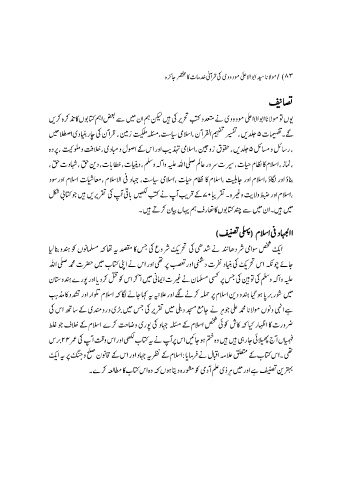 ۸۳) / مولانا سید ابوالاعلیٰ مودودی کی قرآنی خدمات کا مختصر جائزہ
تصانیف
یوں تو مولانا ابوالاعلیٰ مودودی نے متعدد کتب تحریر کی ہیں لیکن ہم ان میں سے بعض اہم کتابوں کا تذکرہ کریں
گے۔ تفہیمات ۵ جلدیں، تفسیر تفہیم القرآن، اسلامی سیاست، مسئلہ ملکیت زمین، قرآن کی چار بنیادی اصطلاحیں
، رسائل و مسائل ۵ جلدیں، حقوق زوجین، اسلامی تہذیب اور اس کے اصول و مبادی، خلافت و ملوکیت، پردہ
، نماز، اسلام کا نظام حیات، سیرت سرور عالم صلی اللہ علیہ وآلہ وسلم، دینیات، خطبات، دین حق، شہادت حق،
بناؤ اور بگاڑ، اسلام اور جاہلیت، اسلام کا نظام حیات، اسلامی سیاست، جہاد فی الاسلام، معاشیات اسلام اور سود
، اسلام اور ضبط ولادت وغیرہ۔ تقریباً ۷۰ کے قریب آپ نے کتب لکھیں باقی آپ کی تقریریں ہیں جو کتابی شکل
میں ہیں۔ ان میں سے چند کتابوں کا تعارف ہم یہاں بیان کرتے ہیں۔
الجہاد فی اسلام (پہلی تصنیف)
ایک شخص سوامی شردھانند نے شدھی کی تحریک شروع کی جس کا مقصد یہ تھا کہ مسلمانوں کو ہندو بنا لیا
جائے چونکہ اس تحریک کی بنیاد نفرت دشمنی اور تعصب پر تھی اور اس نے اپنی کتاب میں حضرت محمد صلی اللہ
علیہ وآلہ وسلم کی توہین کی جس پر کسی مسلمان نے غیرت ایمانی میں آ کر اس کو قتل کر دیا اور پورے ہندوستان
میں شور برپا ہو گیا ہندو دین اسلام پر حملہ کرنے لگے اور علانیہ یہ کہا جانے لگا کہ اسلام تلوار اور تشدد کا مذہب
ہے انہی دنوں مولانا محمد علی جوہر نے جامع مسجد دہلی میں تقریر کی جس میں بڑی دردمندی کے ساتھ اس کی
ضرورت کا اظہار کیا کہ کاش کوئی شخص اسلام کے مسئلہ جہاد کی پوری وضاحت کرے اسلام کے خلاف جو غلط
فہمیاں آج پھیلائی جا رہی ہیں وہ ختم ہو جائیں اس پر آپ نے یہ کتاب لکھی اور اس وقت آپ کی عمر ۲۳ برس
تھی۔ اس کتاب کے متعلق علامہ اقبال نے فرمایا: اسلام کے نظریہ جہاد اور اس کے قانون صلح و جنگ پر یہ ایک
بہترین تصنیف ہے اور میں ہر ذی علم آدمی کو مشورہ دیتا ہوں کہ وہ اس کتاب کا مطالعہ کرے۔